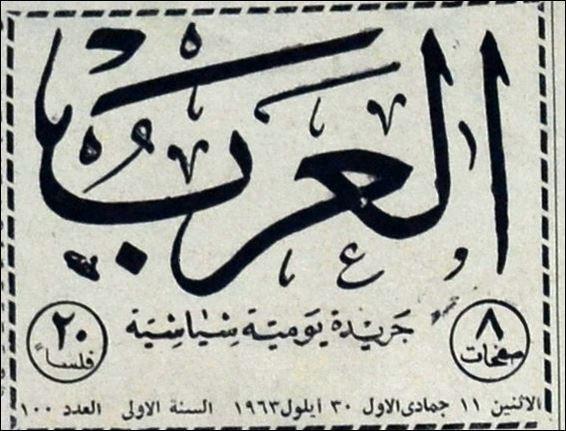 العرب
٨ صفحات
جريدة يومية سياسية
٢٠ فلساً
الاثنين ١١ جمادى الاول ٣٠ ايلول ١٩٦٣ السنة الاولى العدد ١٠٠